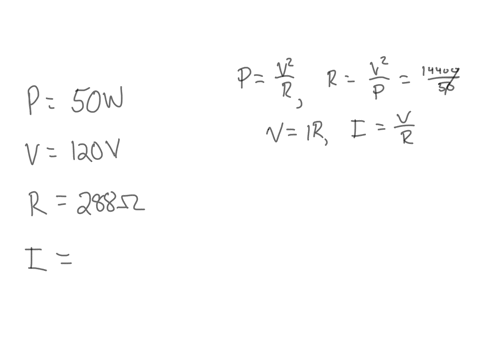 P = 50W
V = 120V
R = 288Ω
I =
P = V²/R, R = V²/P = 14400/50
V = IR, I = V/R